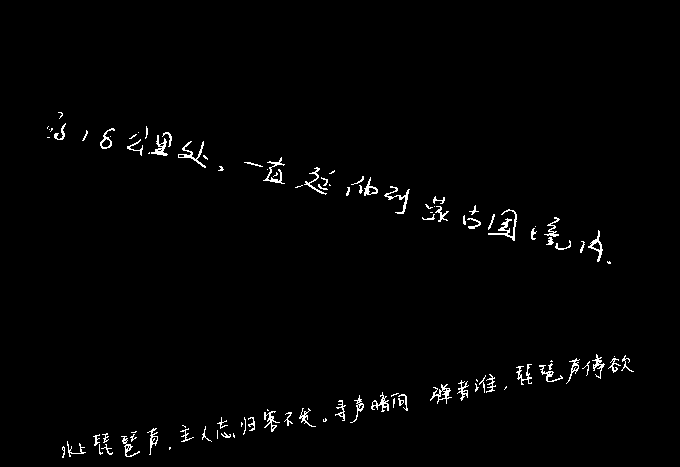 18公里处,一直延伸到蒙古国境内.
水上琵琶声,主人忘归客不发。寻声暗问 弹者谁,琵琶声停欲